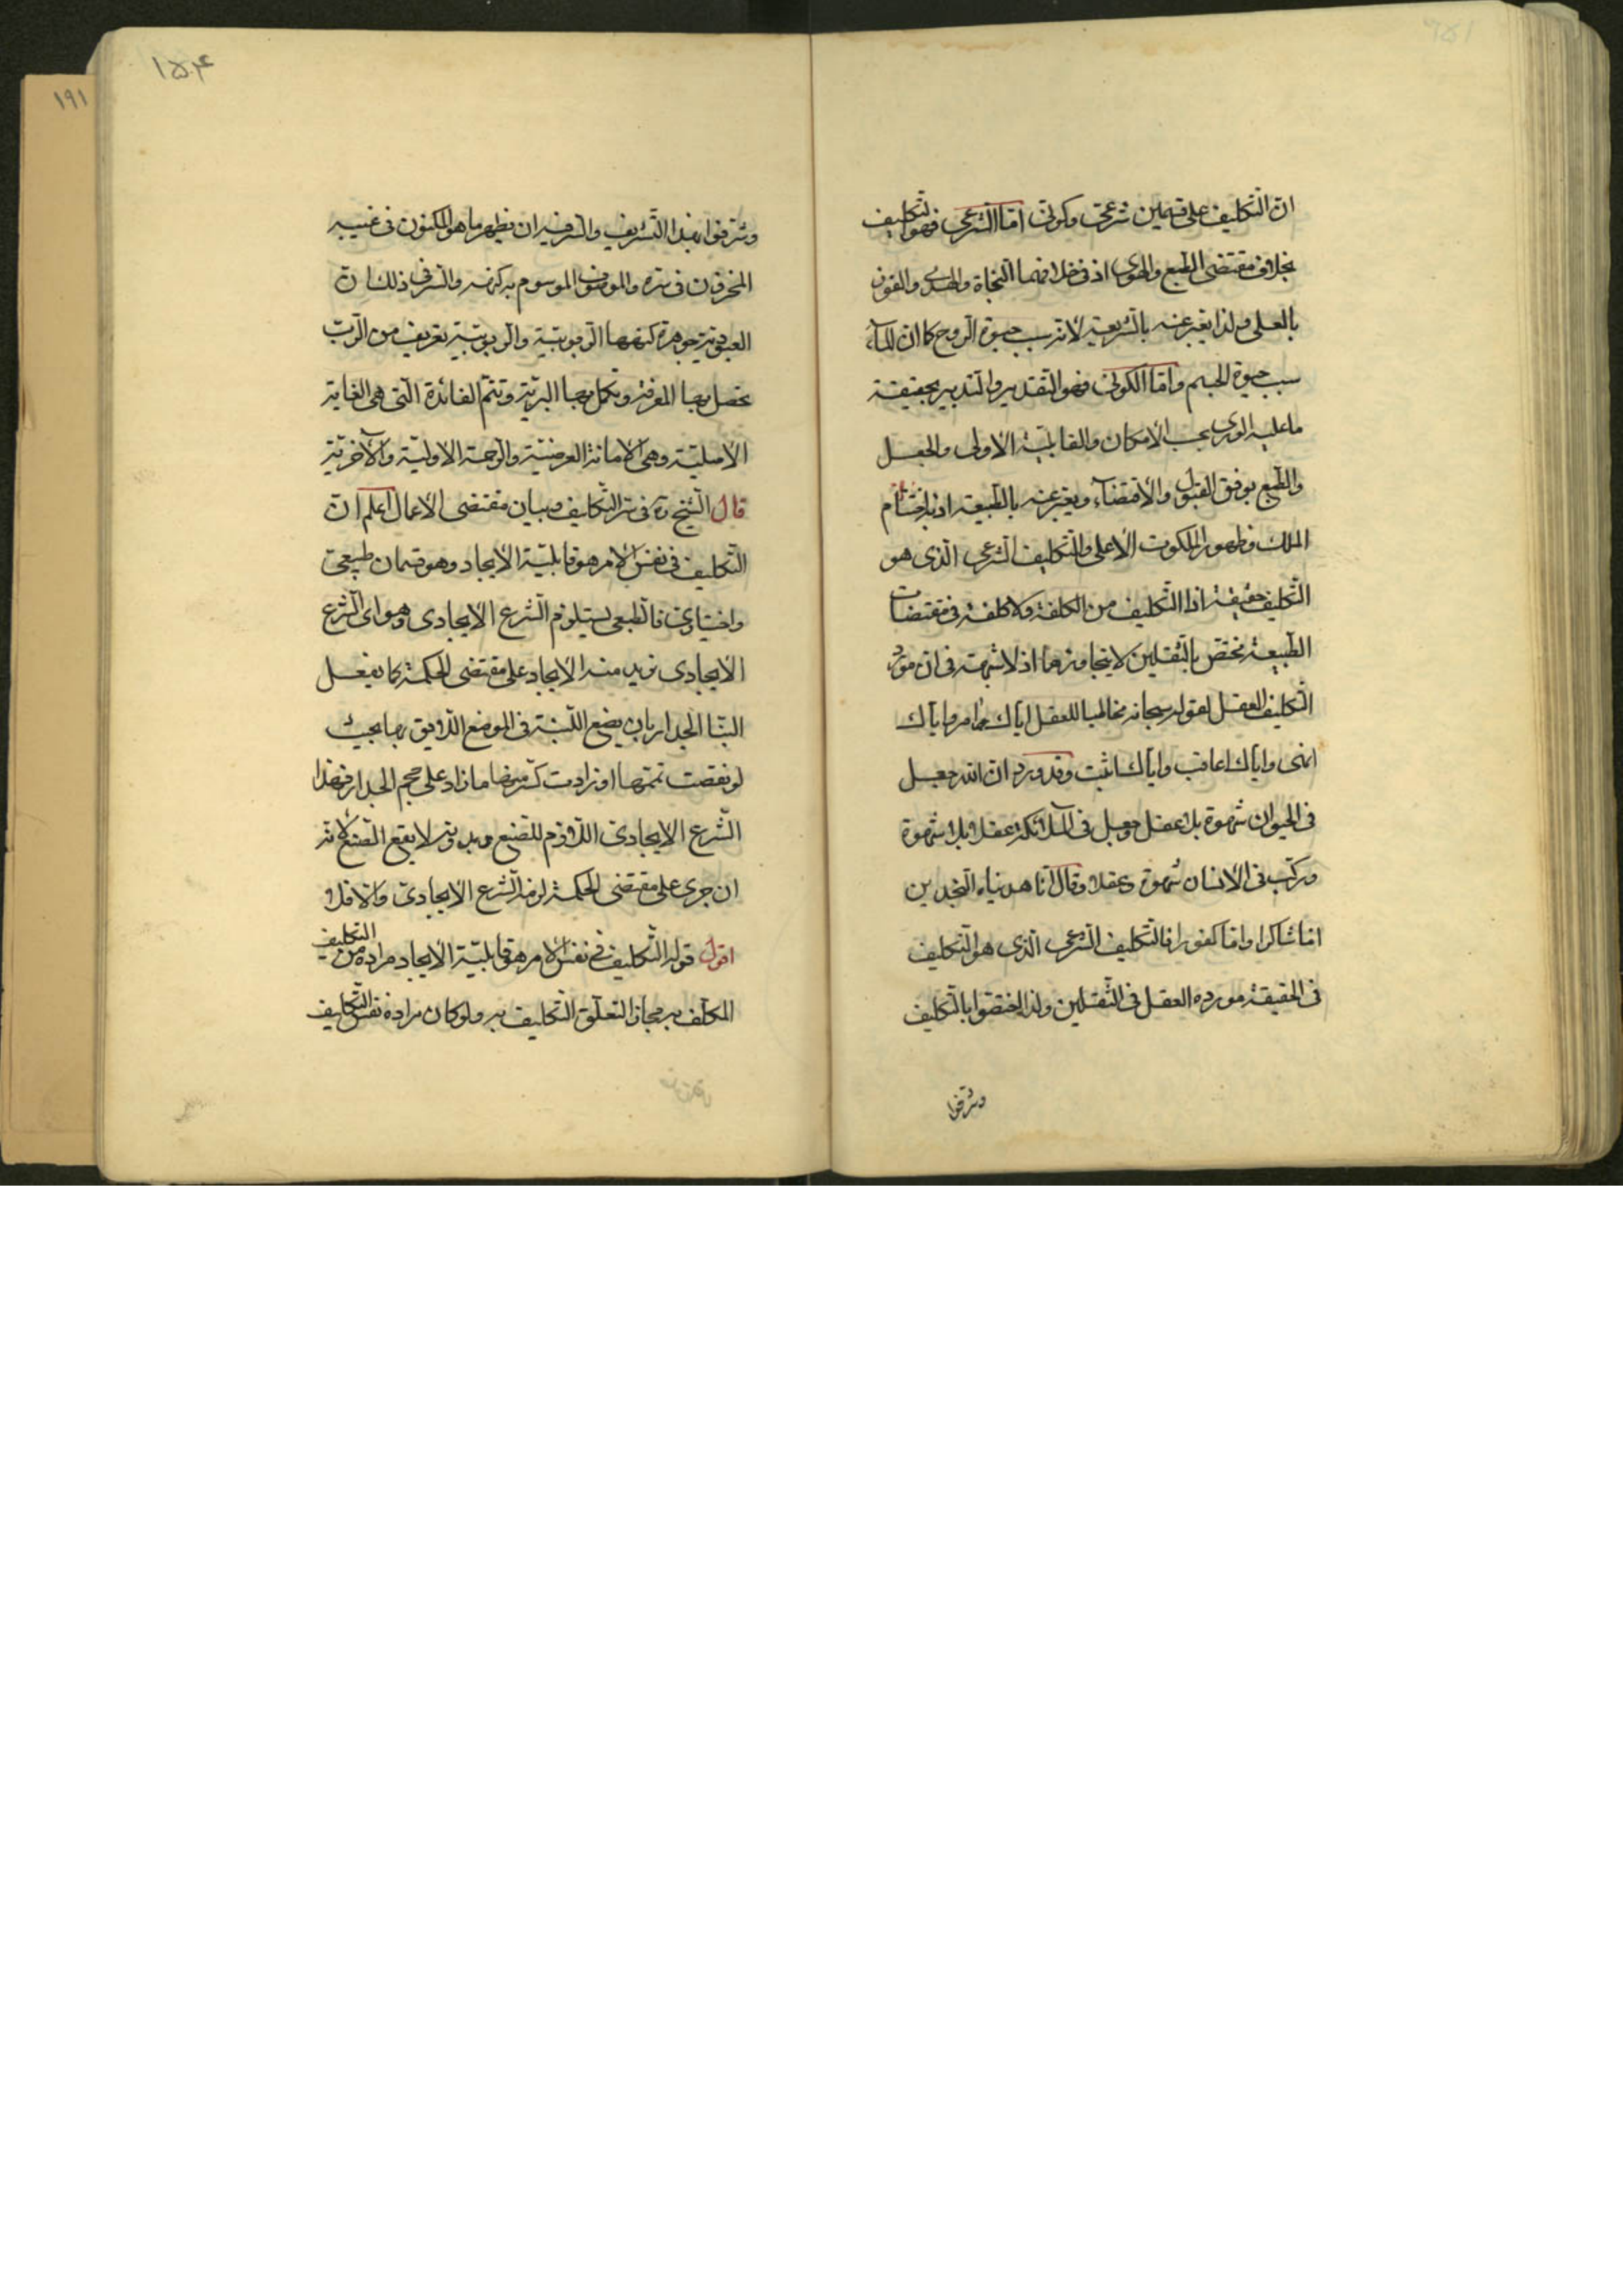 انّ التّكليف على قسمين شرعيّ وكونيّ امّا الشّرعي فهو التكليف
بخلاف مقتضى الطبع والهوى اذ في خلافهما النّجاة والهدى والفوز
بالعلى ولذا يعبّر عنه بالشّريعة لانّه سبب حيوة الرّوح كما ان الماء
سبب حيوة الجسم وامّا الكونيّ فهو التّقدير والتّدبير بحقيقة
ما عليه الورى بحسب الامكان والقابليّة الاولى والجعل
والطّبع بوفق القبول والاقتضاء ويعبّر عنه بالطّبيعة اذ به
الملك وظهور الملكوت الاعلى والتّكليف الشّرعي الّذي هو
التّكليف حقيقة اذ التّكليف من الكلفة ولا كلفة في مقتضيات
الطّبيعة مختصّ بالثّقلين لا يتجاوزهما اذ لا شبهة في ان مورد
التّكليف العقل لقوله سبحانه مخاطبا للعقل ايّاك آمر وايّاك
انهى وايّاك اعاقب وايّاك اثيب وقد ورد انّ الله جعل
في الحيوان شهوة بلا عقل وجعل في الملائكة عقلا بلا شهوة
وركّب في الانسان شهوة وعقلا وقال انّا هديناه النّجدين
امّا شاكرا وامّا كفورا فالتّكليف الشّرعي الّذي هو التّكليف
في الحقيقة مورده العقل في الثّقلين ولذا اختصّوا بالتّكليف
وشرّفوا
١٥٤
١٩١
وشرّفوا بهذا التّشريف والسّر فيه ان يظهر ما هو المكنون في غيبه
المخزون في سرّه والموصوف الموسوم به كنهه والسّر في ذلك انّ
العبوديّة جوهرة كنهها الرّبوبيّة والرّبوبيّة تعريف من الرّبّ
يحصل بها المعرفة وتكمل بها البريّة وتتمّ الفائدة الّتي هي الغاية
الاصليّة وهي الامانة العرضيّة والرّحمة الاوليّة والآخريّة
قال الشّيخ ره في سرّ التّكليف وبيان مقتضى الاعمال اعلم انّ
التّكليف في نفس الامر هو قابليّة الايجاد وهو قسمان طبيعيّ
واختياريّ فالطّبيعي يستلزم الشّرع الايجادي وهو اى الشّرع
الايجادى نريد منه الايجاد على مقتضى الحكمة كما يفعل
البنّا الجدار بان يضع اللّبنة في الموضع اللّايق بها بحيث
لو نقصت تمّمها او زادت كسّر منها ما زاد على حجم الجدار فهذا
الشّرع الايجاديّ اللّازم للصّنع وبدونه لا يقع الصّنع لانّه
ان جرى على مقتضى الحكمة لزمه الشّرع الايجاديّ والّا فلا
اقول قوله التّكليف في نفس الامر هو قابليّة الايجاد مراده من التكليف
المكلّف به مجاز التعلّق التّكليف به ولو كان مراده نفس التّكليف